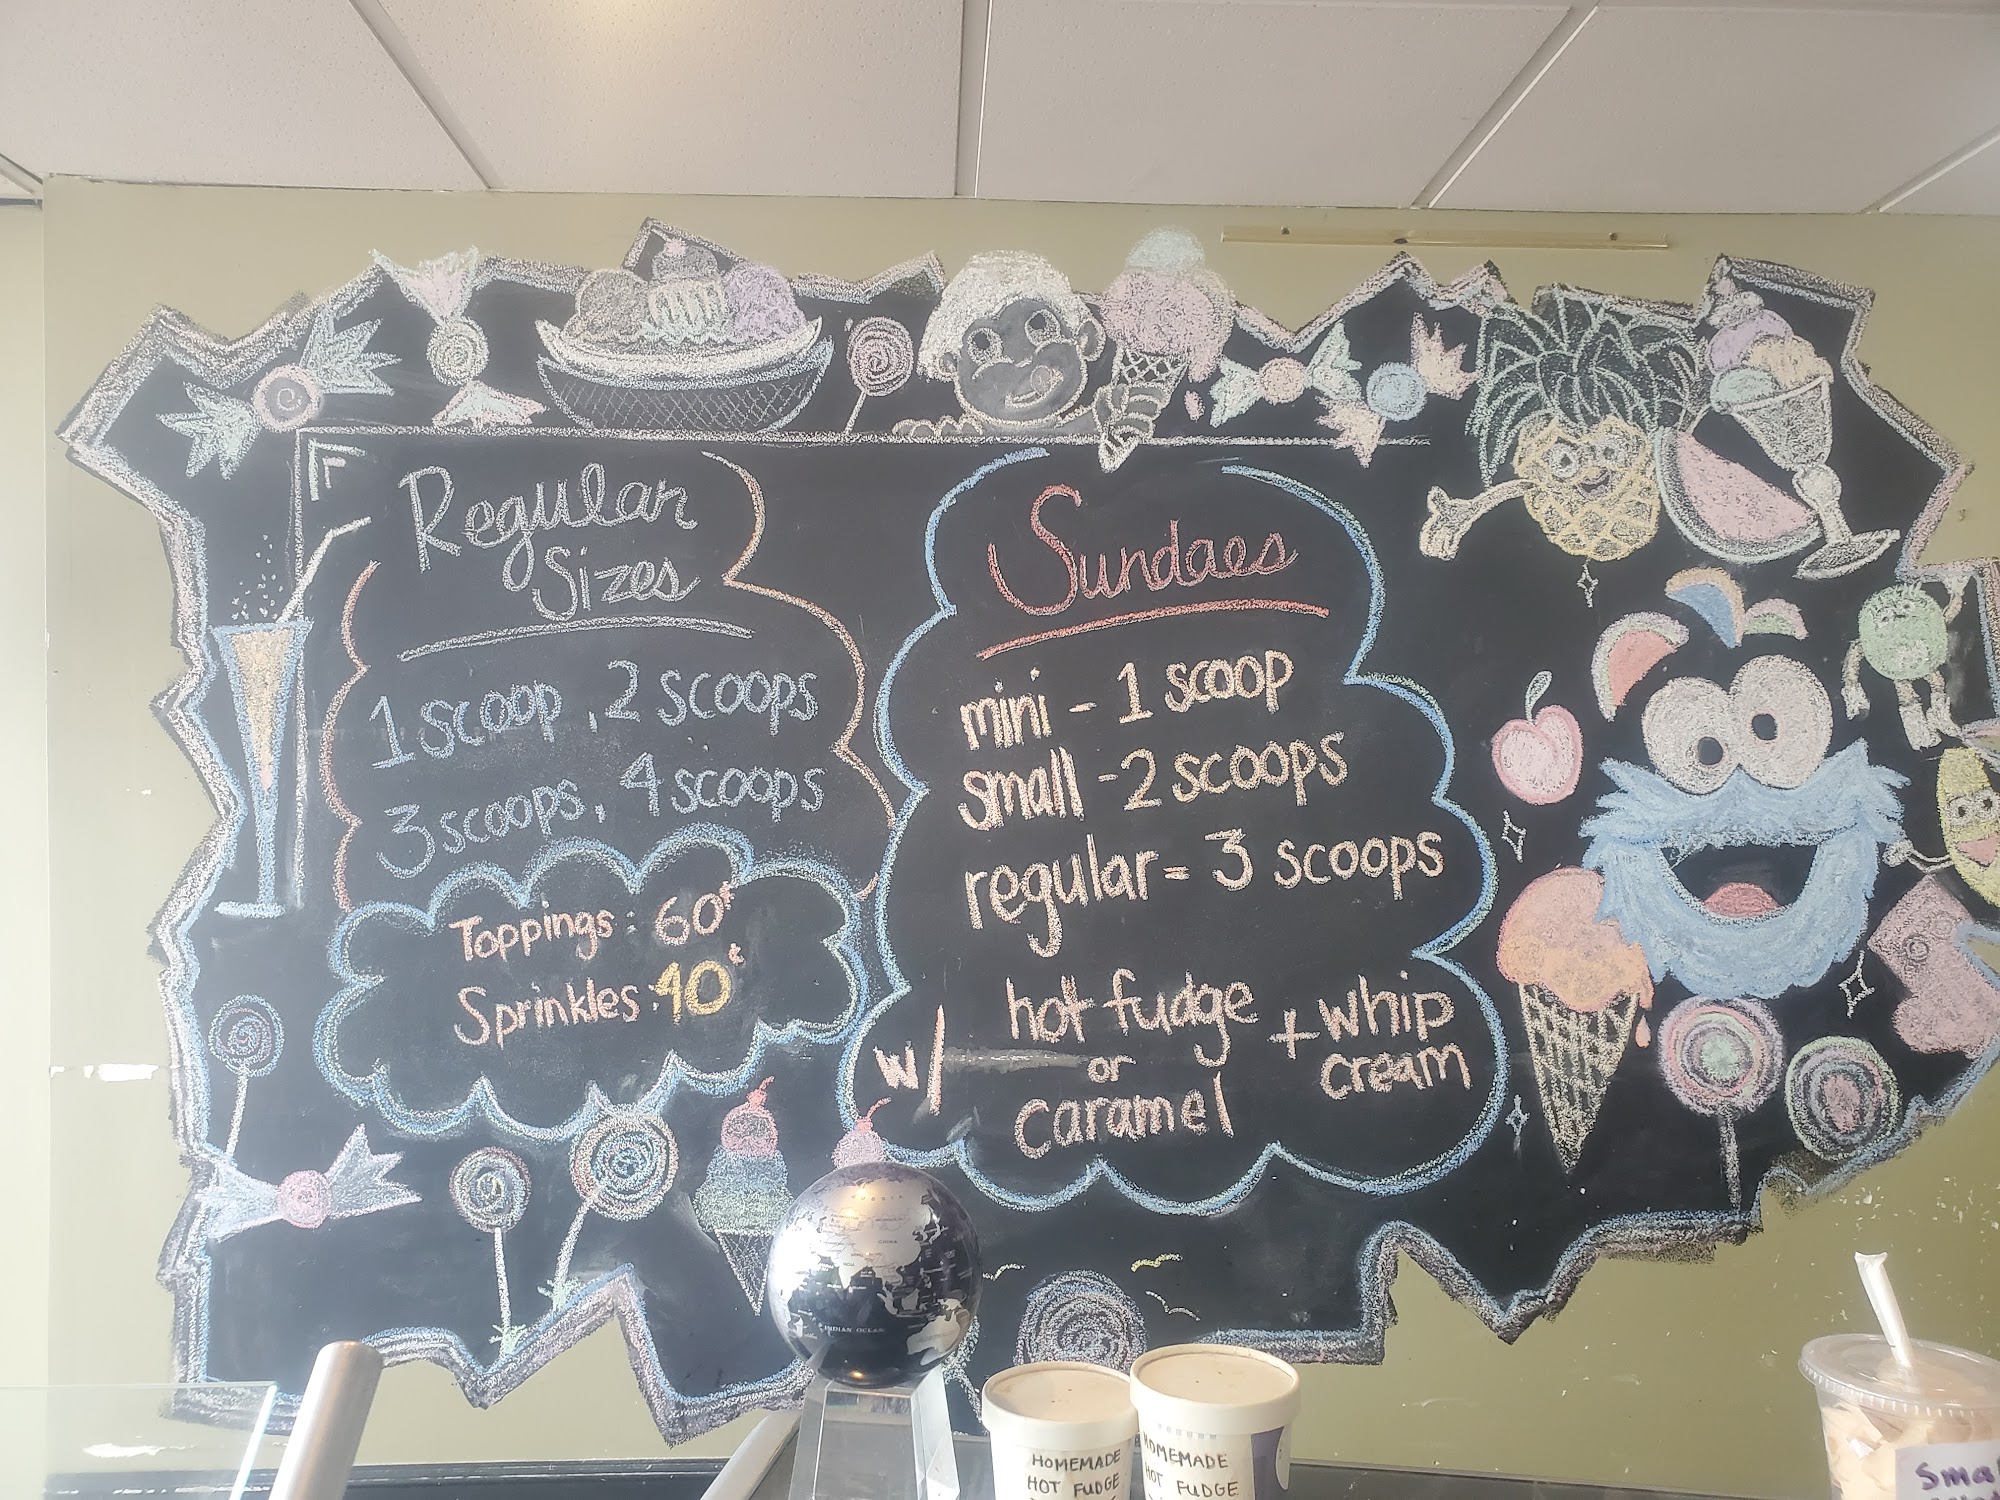 Regular
Sizes
1 scoop, 2 scoops
3 scoops, 4 scoops
Toppings: 60¢
Sprinkles: 40¢
Sundaes
mini - 1 scoop
small - 2 scoops
regular = 3 scoops
w/ hot fudge
or
caramel
+ whip
cream
INDIAN OCEAN
HOMEMADE
HOT FUDGE
HOMEMADE
HOT FUDGE